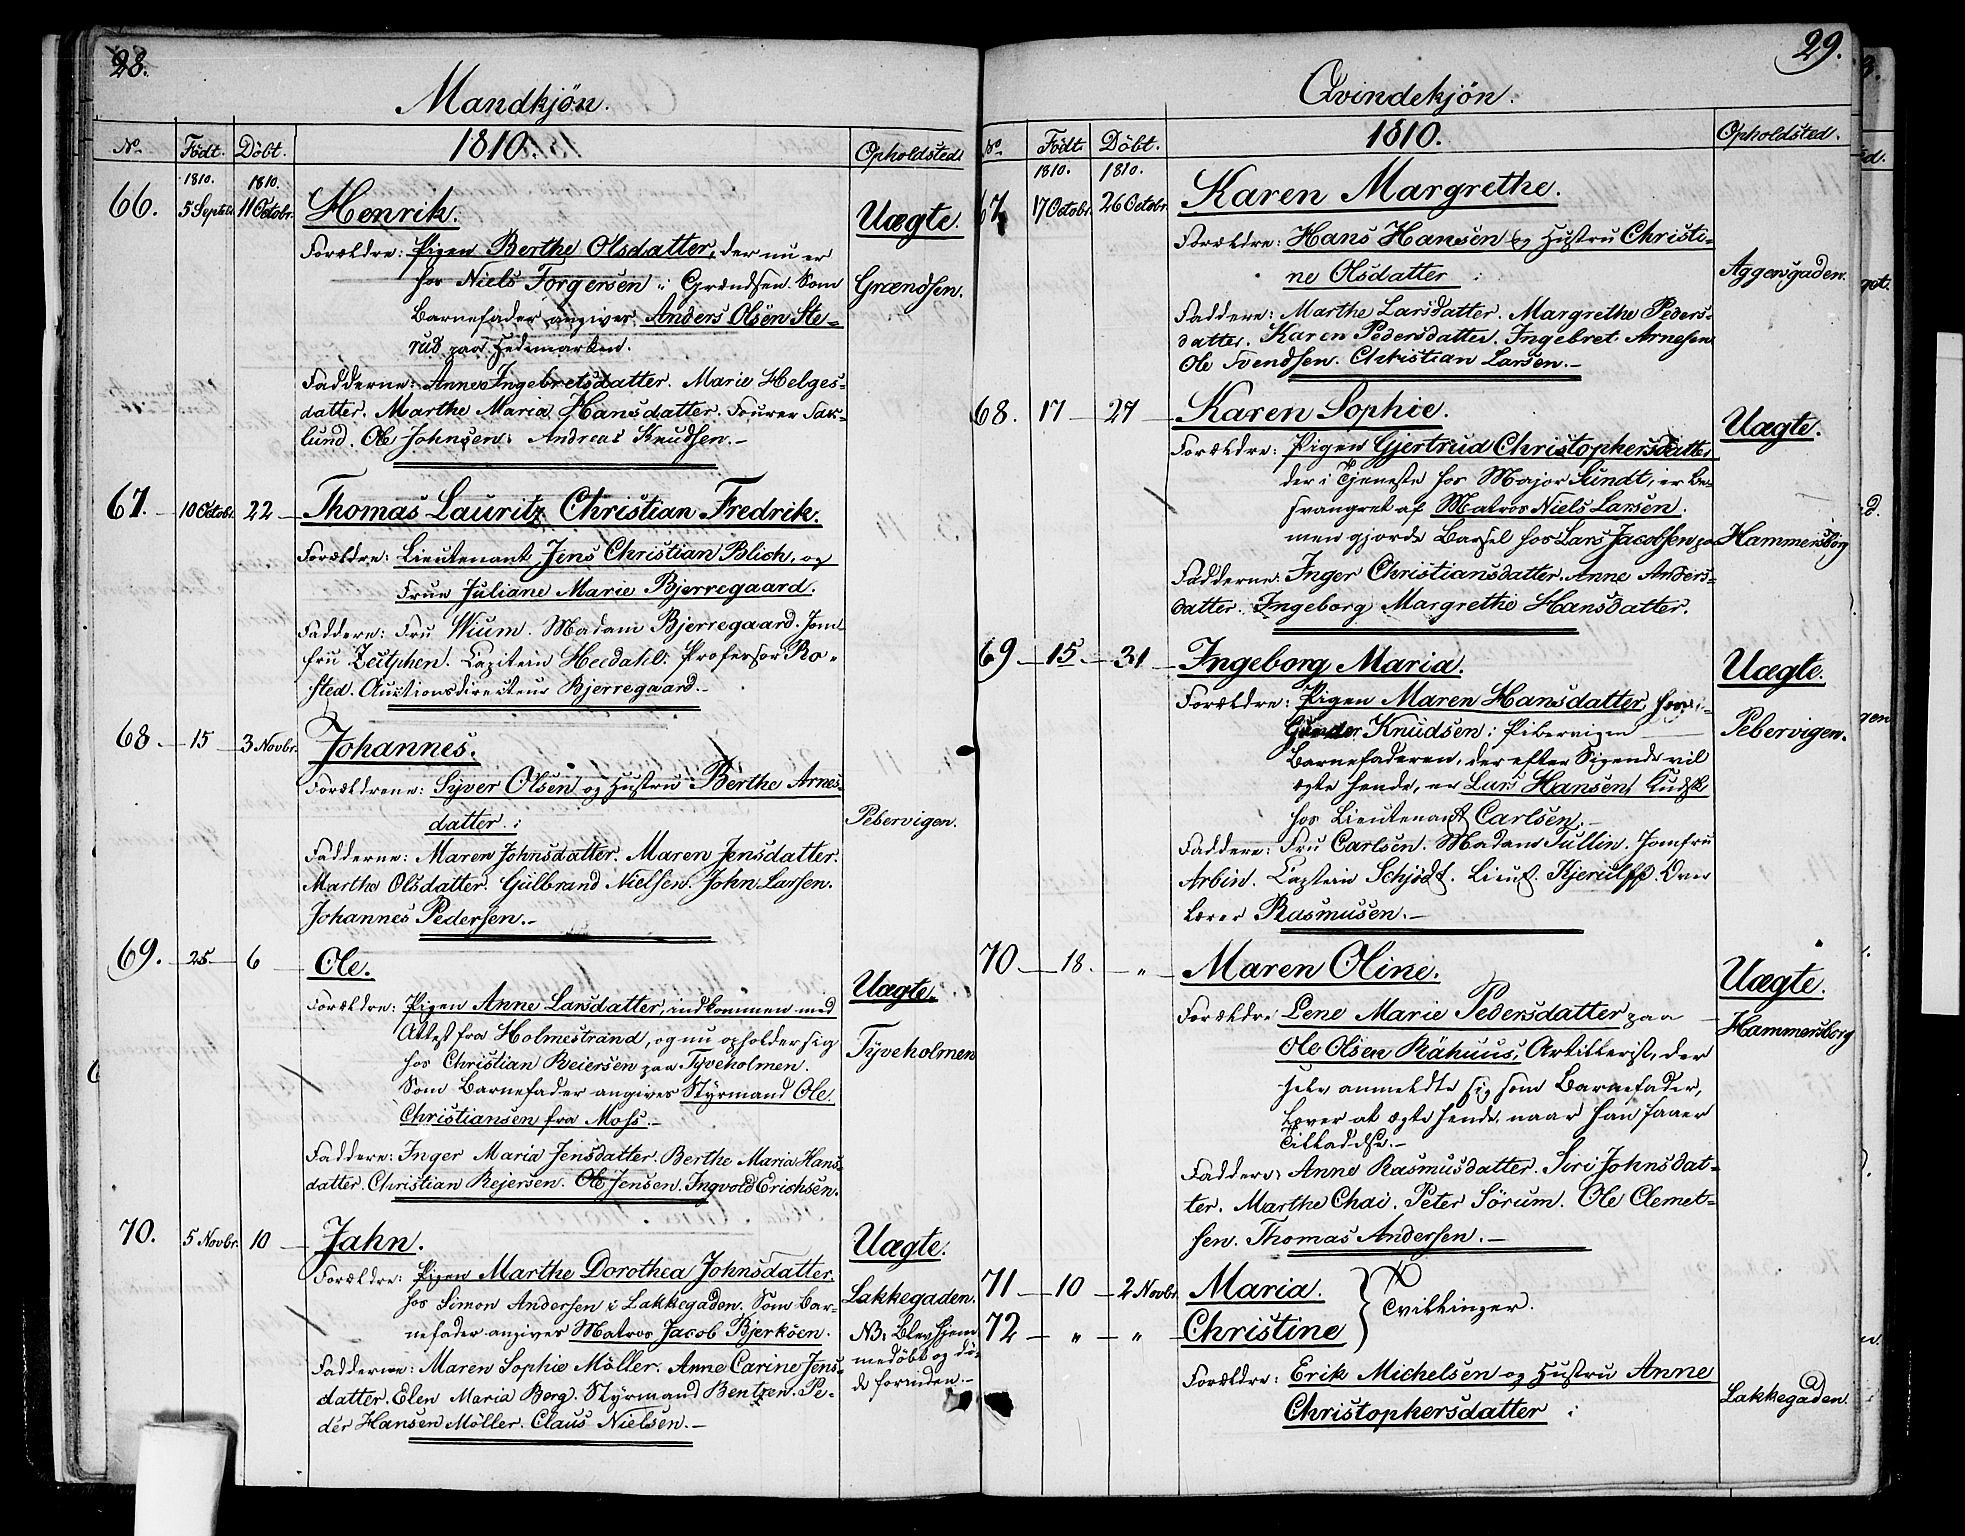 28.
Mandkjön.
No. Födt. Döbt. 1810. Opholdsted
1810. 1810.
66. 5 Septbr. 11 Octobr. Henrik. Uægte.
Forældre: Pigen Berthe Olsdatter, der nu er
hos Niels Torgersen i Grændsen. Som Grændsen.
Barnefader angives Anders Olsön Ste-
rud paa Hedemarken.
Fadderne: Anne Ingebretsdatter. Marie Helges-
datter. Marthe Maria Hansdatter. Fourer
lund. Ole Johnsen. Andreas Knudsen.-
67. 10 Octobr. 22 Thomas Lauritz Christian Fredrik.
Forældre: Lieutenant Jens Christian Blich, og
Frue Juliane Marie Bjerregaard.
Faddere: Fru Wium. Madam Bjerregaard. Jom-
fru Zeuthen. Capitein Heedahl. Professor Ro-
sted. Auctionsdirecteur Bjerregaard.-
68 15 3 Novbr. Johannes.
Forældrene: Syver Olsen og Hustru Berthe Arnes-
datter i Pebervigen.
Fadderne: Maren Johnsdatter. Maren Jensdatter.
Marthe Olsdatter. Gulbrand Nielsen. John Larsen.
Johannes Pedersen.-
69. 25 6 Ole. Uægte.
Forældre: Pigen Anne Larsdatter, indkommen med
Attest fra Holmestrand, og nu opholder sig
hos Christian Reiersen paa Tyveholmen. Tyveholmen
Som Barnefader angives Styrmand Ole
Christiansen fra Moss.-
Faddere: Inger Maria Jensdatter. Berthe Maria Hans-
datter. Christian Rejersen. Ole Jensen. Ingvold Erichsen.
70. 5 Novbr. 10 Jahn. Uægte.
Forældre: Pigen Marthe Dorothea Johnsdatter
hos Simon Andersen i Lakkegaden. Som Bar- Lakkegaden.
nefader angives Matros Jacob Bjerköen. NB: Blev hjem-
Fadderne: Maren Sophie Möller. Anne Carine Jens- medöbt og dö-
datter. Elen Maria Berg. Styrmand Bentzen. Pe- de forinden.-
der Hansen Möller. Claus Nielsen.-
29.
Qvindekjön.
No Födt. Döbt. 1810. Opholdsted.
1810. 1810.
67 17 Octobr. 26 Octobr. Karen Margrethe.
Forældre: Hans Hansen og Hustru Christi-
ne Olsdatter i Aggersgaden.
Faddere: Marthe Larsdatter. Margrethe Peders-
datter. Karen Pedersdatter. Ingebret Arnesen
Ole Svendsen. Christian Larsen.-
68. 17 27 Karen Sophie. Uægte.
Forældre: Pigen Gjertrud Christophersdatter,
der i Tjeneste hos Major Sundt, er be-
svangret af Matros Niels Larsen.
men gjorde Barsel hos Lars Jacobsen paa Hammersborg
Fadderne: Inger Christiansdatter. Anne Anders-
datter. Ingeborg Margrethe Hansdatter.
69 15 31 Ingeborg Maria. Uægte.
Forældre: Pigen Maren Hansdatter, hos
Gunder Knudsen i Pibervigen Pebervigen.
Barnefaderen, der efter Sigende vil
ægte hende, er Lars Hansen, Kudsk
hos Lieutenant Carlsen.-
Faddere: Fru Carlsen. Madame Tullin. Jomfru
Arbin. Captein Schjödt. Lieut. Kjerulff. Over
lærer Rasmusen.-
70 18. " Maren Oline. Uægte.
Forældre Lene Marie Pedersdatter paa Hammersborg
Ole Olsen Råhuus, Artillerist, der
selv anmeldte sig som Barnefader,
lover at ægte hende, naar han faaer
Tilladelse.-
Faddere: Anne Rasmusdatter. Siri Johnsdat-
ter. Marthe Chai. Peter Sörum. Ole Clemet-
sen. Thomas Andersen.-
71 10 2 Novbr. Maria.
Tvillinger.
72 " " Christine
Forældre: Erik Michelsen og Hustru Anne
Christophersdatter i Lakkegaden.